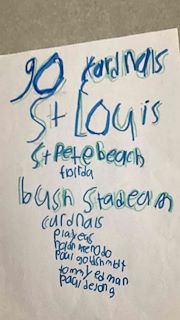 go cardnals
St Louis
St Pete beach
florida
bush stadeam
cardnals
playeus
paul goldshmbt
tommy edman
paul dejong